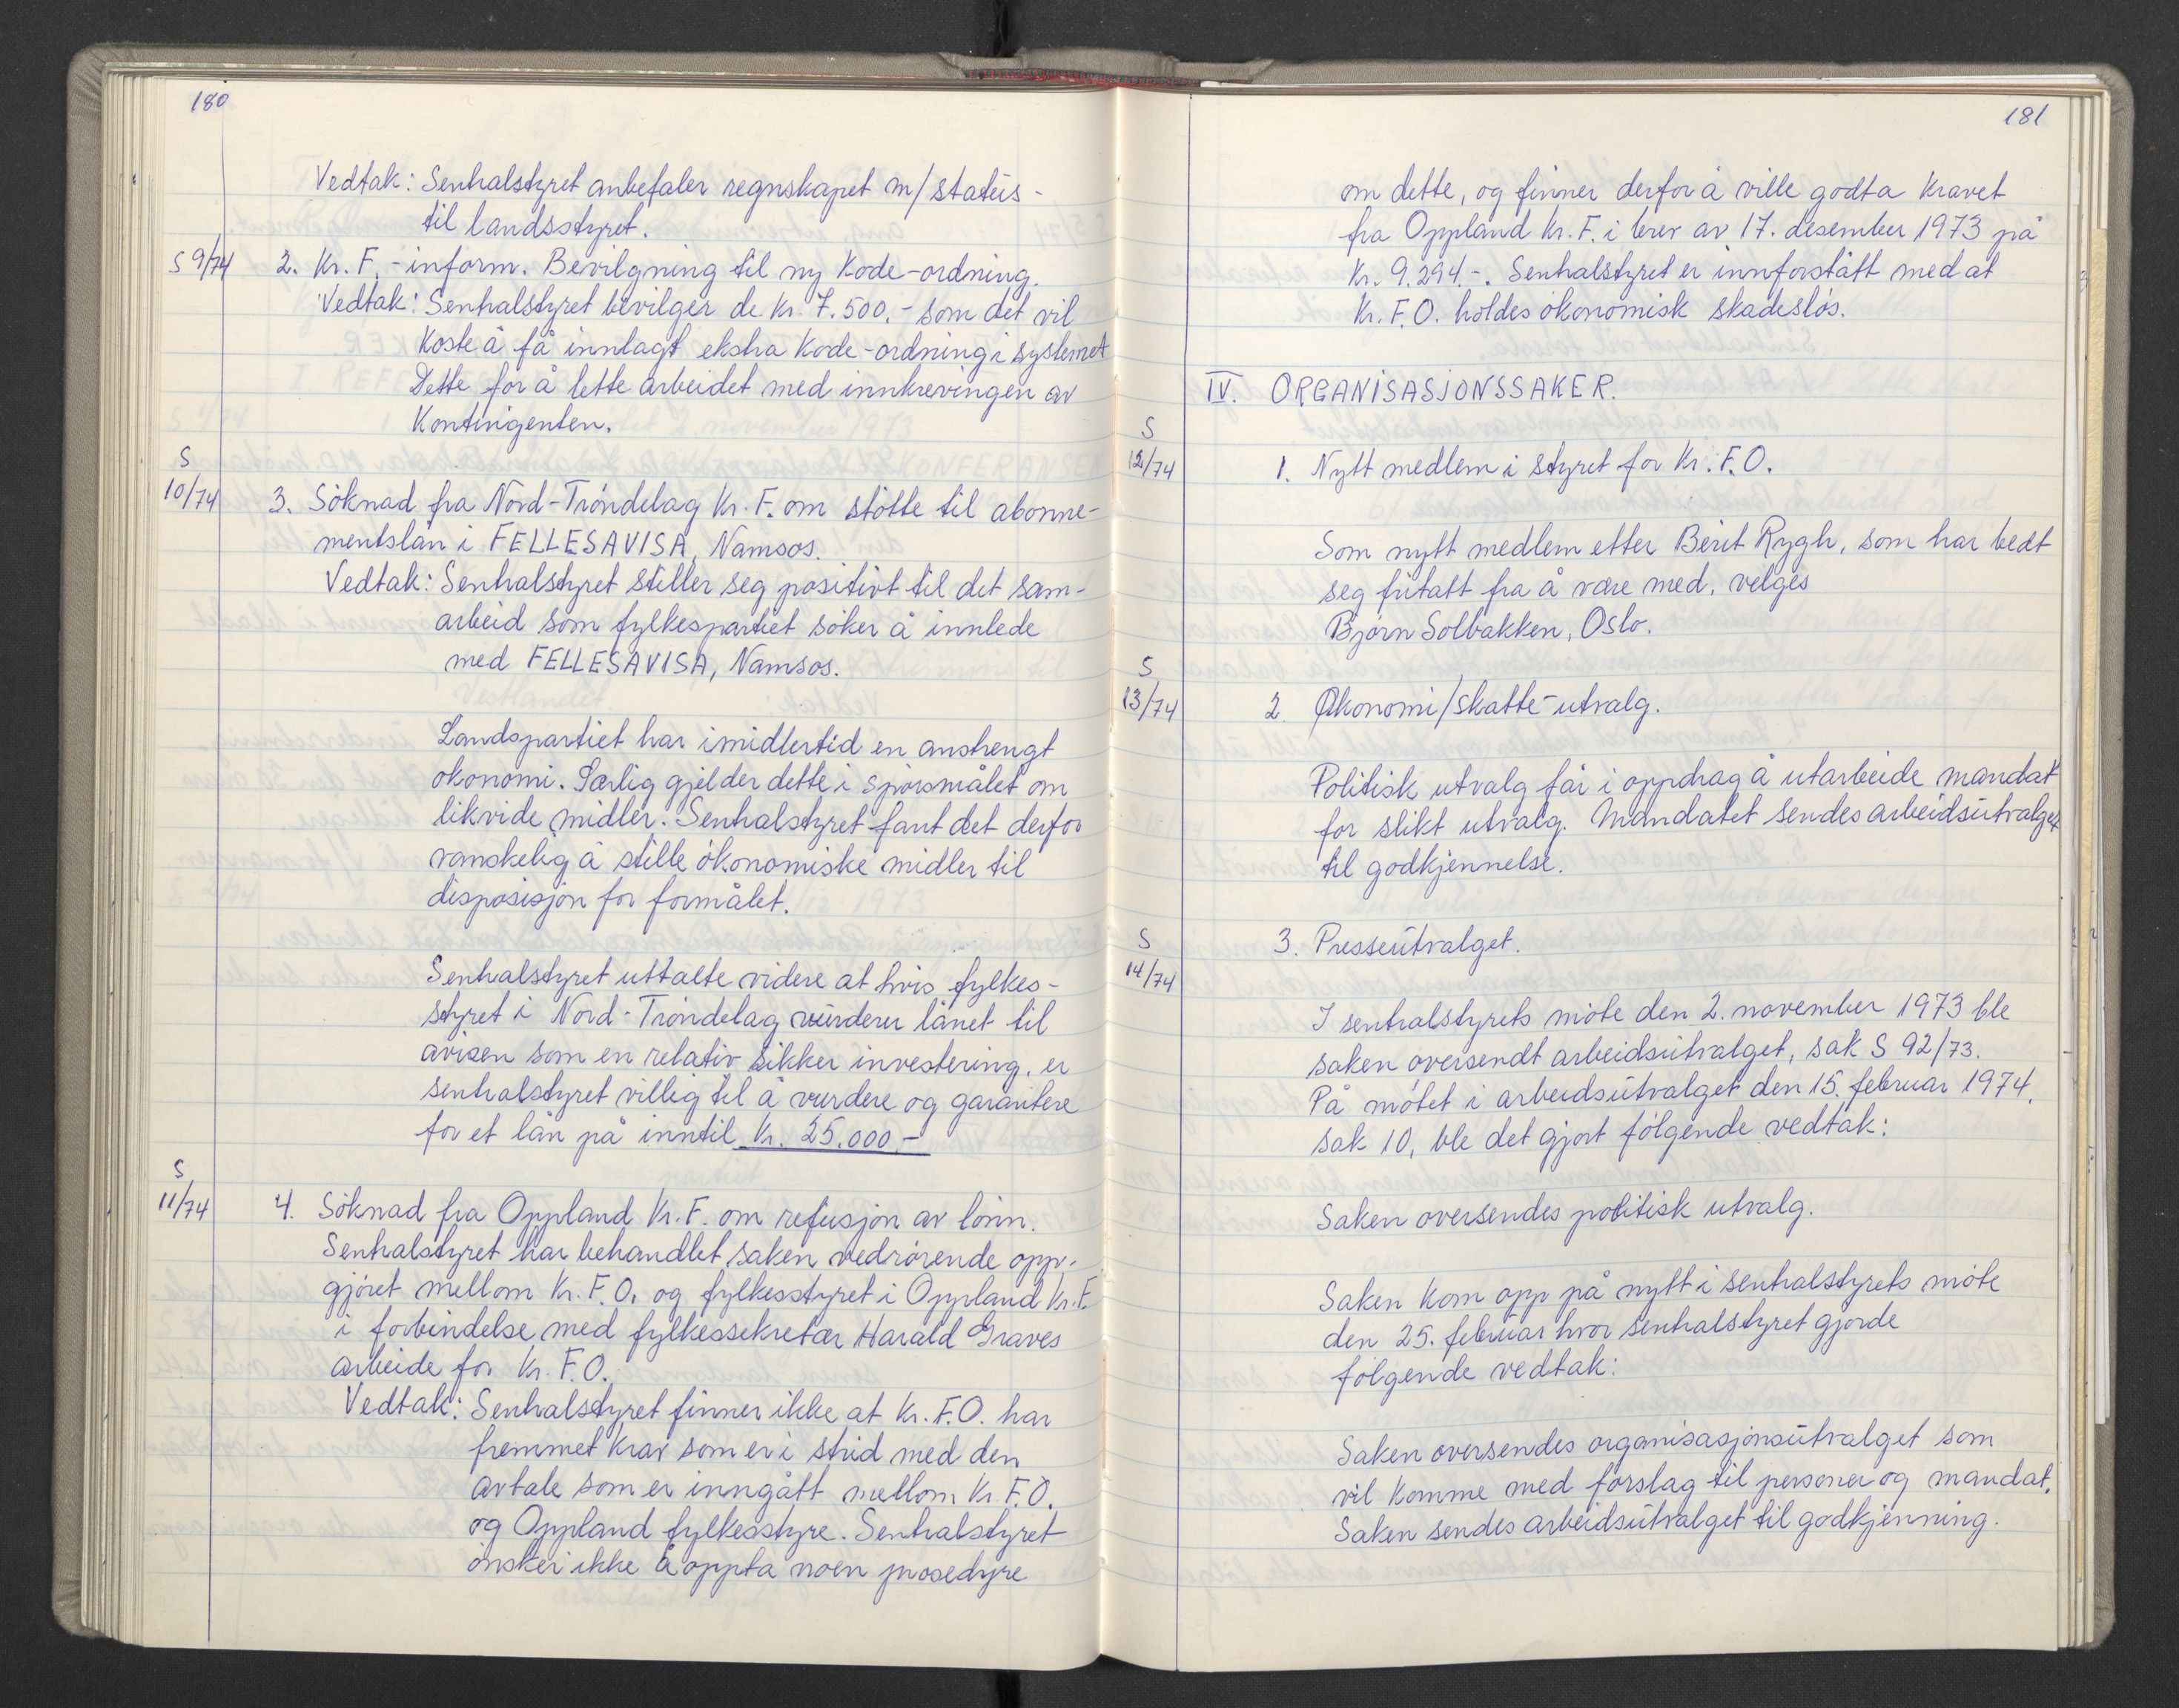 180
Vedtak: Sentralstyret anbefaler regnskapet m/status-
til landsstyret.
S 9/74 2. Kr. F.-inform. Bevilgning til ny kode-ordning.
Vedtak: Sentralstyret bevilger de kr. 7.500.- som det vil
koste å få innlagt ekstra kode-ordning i systemet
Dette for å lette arbeidet med innkrevingen av
kontingenten.
S
10/74 3. Söknad fra Nord-Tröndelag Kr. F. om stötte til abonne-
mentslån i FELLESAVISA, Namsos.
Vedtak: Sentralstyret stiller seg positivt til det sam-
arbeid som fylkespartiet söker å innlede
med FELLESAVISA, Namsos.
Landspartiet har imidlertid en anstrengt
ökonomi. Særlig gjelder dette i spörsmålet om
likvide midler. Sentralstyret fant det derfor
vanskelig å stille ökonomiske midler til
disposisjon for formålet.
Sentralstyret uttalte videre at hvis fylkes-
styret i Nord-Tröndelag vurderer lånet til
avisen som en relativ sikker investering, er
sentralstyret villig til å vurdere og garantere
for et lån på inntil kr. 25.000.-
S
11/74 4. Söknad fra Oppland Kr. F. om refusjon av lönn.
Sentralstyret har behandlet saken vedrörende opp-
gjöret mellom Kr. F. O. og fylkesstyret i Oppland Kr. F.
i forbindelse med fylkessekretær Harald Graves
arbeide for Kr. F. O.
Vedtak: Sentralstyret finner ikke at Kr. F. O. har
fremmet krav som er i strid med den
avtale som er inngått mellom Kr. F. O.
og Oppland fylkesstyre. Sentralstyret
önsker ikke å oppta noen prosedyre
181
om dette, og finner derfor å ville godta kravet
fra Oppland Kr. F. i brev av 17. desember 1973 på
kr. 9.294.-. Sentralstyret er innforstått med at
Kr. F. O. holdes ökonomisk skadeslös.
IV. ORGANISASJONSSAKER.
S
12/74 1. Nytt medlem i styret for Kr. F. O.
Som nytt medlem etter Berit Rygh, som har bedt
seg fritatt fra å være med, velges
Björn Solbakken, Oslo.
S
13/74 2. Økonomi/skatte-utvalg.
Politisk utvalg får i oppdrag å utarbeide mandat
for slikt utvalg. Mandatet sendes arbeidsutvalget
til godkjennelse.
S
14/74 3. Presseutvalget.
I sentralstyrets möte den 2. november 1973 ble
saken oversendt arbeidsutvalget, sak S 92/73.
På mötet i arbeidsutvalget den 15. februar 1974,
sak 10, ble det gjort fölgende vedtak:
Saken oversendes politisk utvalg.
Saken kom opp på nytt i sentralstyrets möte
den 25. februar hvor sentralstyret gjorde
fölgende vedtak:
Saken oversendes organisasjonsutvalget som
vil komme med forslag til personer og mandat.
Saken sendes arbeidsutvalget til godkjenning.